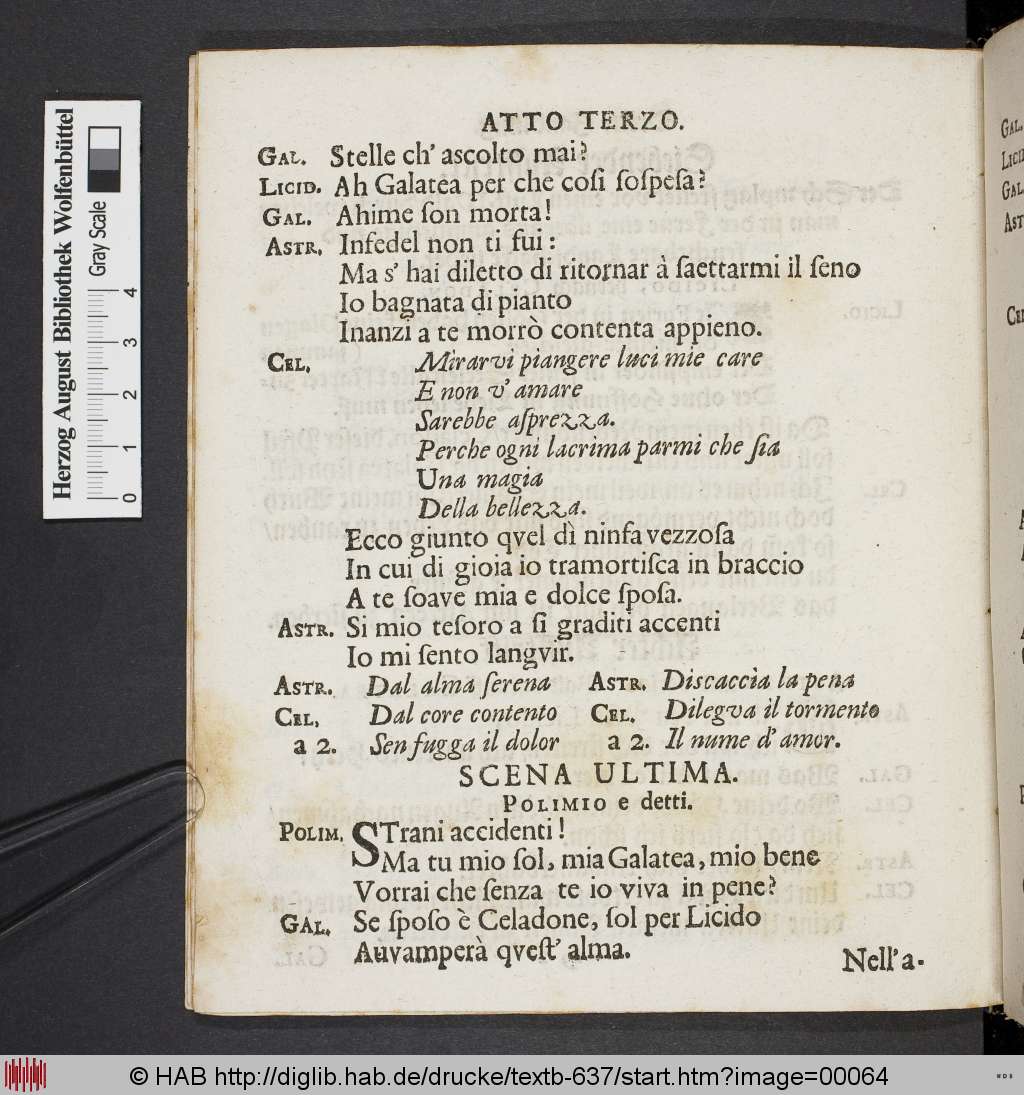 ATTO TERZO.
GAL. Stelle ch' ascolto mai?
LICID. Ah Galatea per che coſi ſoſpeſa?
GAL. Ahime ſon morta!
ASTR. Infedel non ti fui:
Ma s' hai diletto di ritornar à ſaettarmi il ſeno
Io bagnata di pianto
Inanzi a te morrò contenta appieno.
CEL. Mirarvi piangere luci mie care
E non v' amare
Sarebbe aſprezza.
Perche ogni lacrima parmi che ſia
Una magia
Della bellezza.
Ecco giunto qvel dì ninfa vezzoſa
In cui di gioia io tramortiſca in braccio
A te ſoave mia e dolce ſpoſa.
ASTR. Si mio teſoro a ſi graditi accenti
Io mi ſento langvir.
ASTR. Dal alma ſerena ASTR. Discaccia la pena
CEL. Dal core contento CEL. Dilegva il tormento
a 2. Sen fugga il dolor a 2. Il nume d' amor.
SCENA ULTIMA.
POLIMIO e detti.
POLIM. STrani accidenti!
Ma tu mio ſol, mia Galatea, mio bene
Vorrai che ſenza te io viva in pene?
GAL. Se ſpoſo è Celadone, ſol per Licido
Auvamperà qveſt' alma.
Nell'a-
Herzog August Bibliothek Wolfenbüttel
Gray Scale
0 1 2 3 4
GAL.
LICID
GAL
AST
CEL
© HAB http://diglib.hab.de/drucke/textb-637/start.htm?image=00064